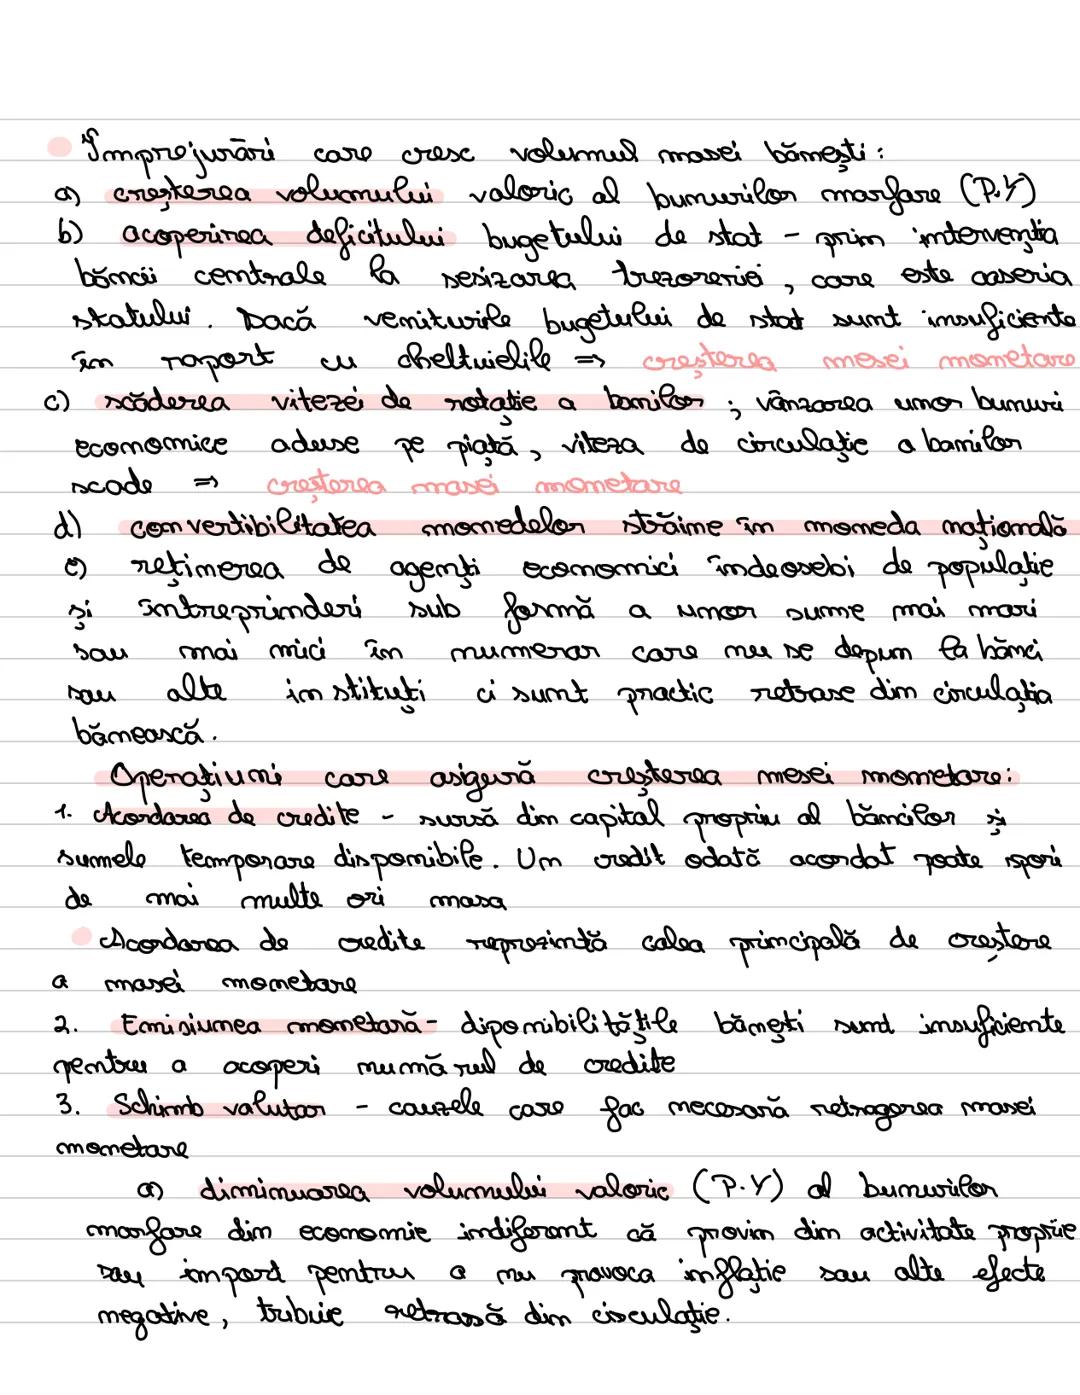 Împrejurări care cresc volumul masei bănești :
a) creșterea volumului valoric al bunurilor marfare (P.Y)
b) acoperirea deficitului bugetului de stat - prin intervenția
băncii centrale la sesizarea trezoreriei , care este caseria
statului . Dacă veniturile bugetului de stat sunt insuficiente
în raport cu cheltuielile => creșterea mesei monetare
c) scăderea vitezei de rotație a banilor ; vânzarea unor bunuri
economice aduse pe piață , viteza de circulație a banilor
scade => creșterea masei monetare
d) convertibilitatea monedelor străine în moneda națională
e) reținerea de agenți economici îndeosebi de populație
și întreprinderi sub formă a unor sume mai mari
sau mai mici în numerar care nu se depun la bănci
sau alte instituți ci sunt practic retrase din circulația
bănească .
Operațiuni care asigură creșterea mesei monetare :
1. Acordarea de credite - sursă din capital propriu al băncilor și
sumele temporare disponibile . Un credit odată acordat poate spori
de mai multe ori masa
Acordarea de credite reprezintă calea principală de creștere
a masei monetare
2. Emisiunea monetară - diponibilitățile bănești sunt insuficiente
pentru a acoperi numărul de credite
3. Schimb valutar - cauzele care fac necesară retragerea masei
monetare
a) diminuarea volumului valoric (P.Y) al bunurilor
marfare din economie indiferent că provin din activitate proprie
sau import pentru a nu provoca inflație sau alte efecte
negative , tribuie retrasă din circulație .